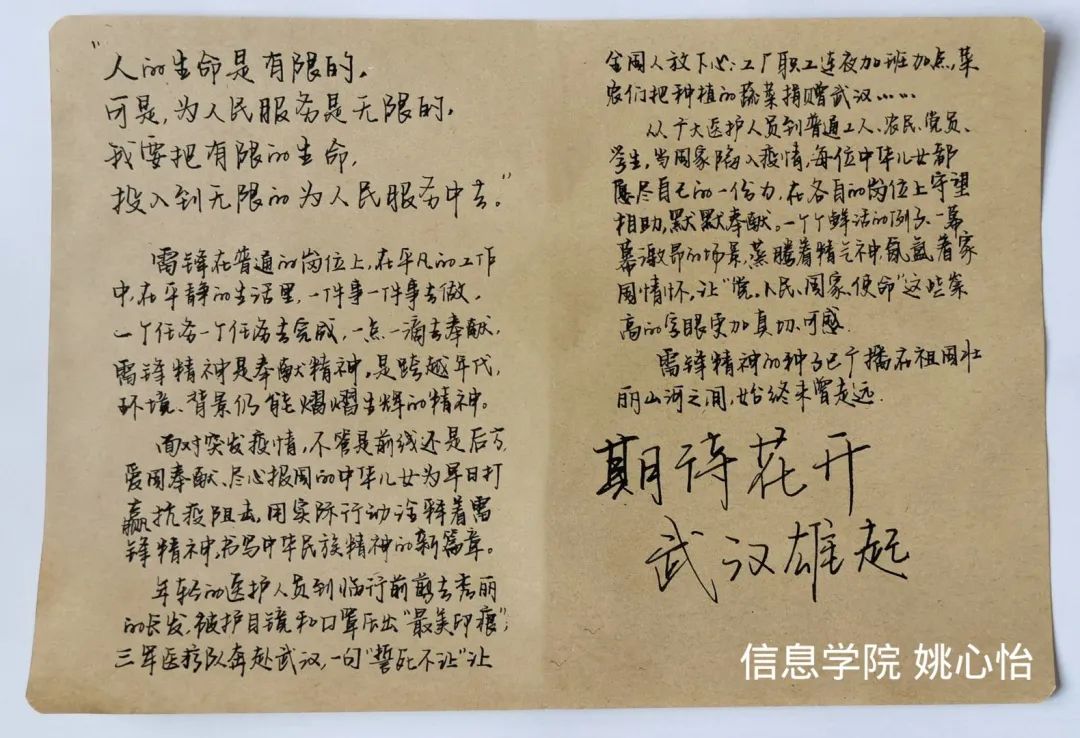 “人的生命是有限的，
可是，为人民服务是无限的，
我要把有限的生命，
投入到无限的为人民服务中去。”
雷锋在普通的岗位上，在平凡的工作
中，在平静的生活里，一件事一件事去做，
一个任务一个任务去完成，一点一滴去奉献，
雷锋精神是奉献精神，是跨越年代、
环境、背景仍能熠熠生辉的精神。
面对突发疫情，不管是前线还是后方，
爱国奉献、尽心报国的中华儿女为早日打
赢抗疫阻击，用实际行动诠释着雷
锋精神，书写中华民族精神的新篇章。
年轻的医护人员到临行前剪去秀丽
的长发，被护目镜和口罩压出“最美印痕”；
三军医疗队奔赴武汉，一句“誓死不让”让
全国人放下心；工厂职工连夜加班加点，菜
农们把种植的蔬菜捐赠武汉……
从广大医护人员到普通工人、农民、党员、
学生，当国家陷入疫情，每位中华儿女都
愿尽自己的一份力，在各自的岗位上守望
相助，默默奉献。一个个鲜活的例子、一幕
幕激昂的场景，蒸腾着精气神，氤氲着家
国情怀，让“党、人民、国家、使命”这些崇
高的字眼更加真切、可感。
雷锋精神的种子已广播在祖国壮
丽山河之间，始终未曾走远。
期待花开
武汉雄起
信息学院 姚心怡